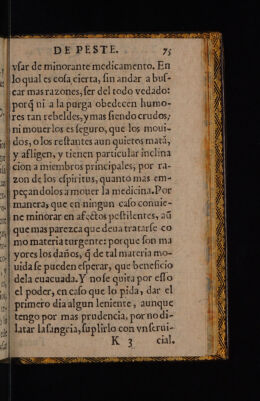 DE PESTE. 75
vſar de minorante medicamento. En
lo qual es coſa cierta, ſin andar a buſ-
car mas razones, ſer del todo vedado:
porq̃ ni a la purga obedecen humo-
res tan rebeldes, y mas ſiendo crudos;
ni mouerlos es ſeguro, que los moui-
dos, o los reſtantes aun quietos matã,
y afligen, y tienen particular inclina
cion a miembros principales, por ra-
zon de los eſpiritus, quanto mas em-
peçandolos a mouer la medicina. Por
manera, que en ningun caſo conuie-
ne minorar en afectos peſtilentes, aũ
que mas parezca que deua tratarſe co
mo materia turgente: porque ſon ma
yores los daños, q̃ de tal materia mo-
uida ſe pueden eſperar, que beneficio
dela euacuada. Y no ſe quita por eſſo
el poder, en caſo que lo pida, dar el
primero dia algun leniente, aunque
tengo por mas prudencia, por no di-
latar la ſangria, ſuplirlo con vn ſerui-
K 3 cial.